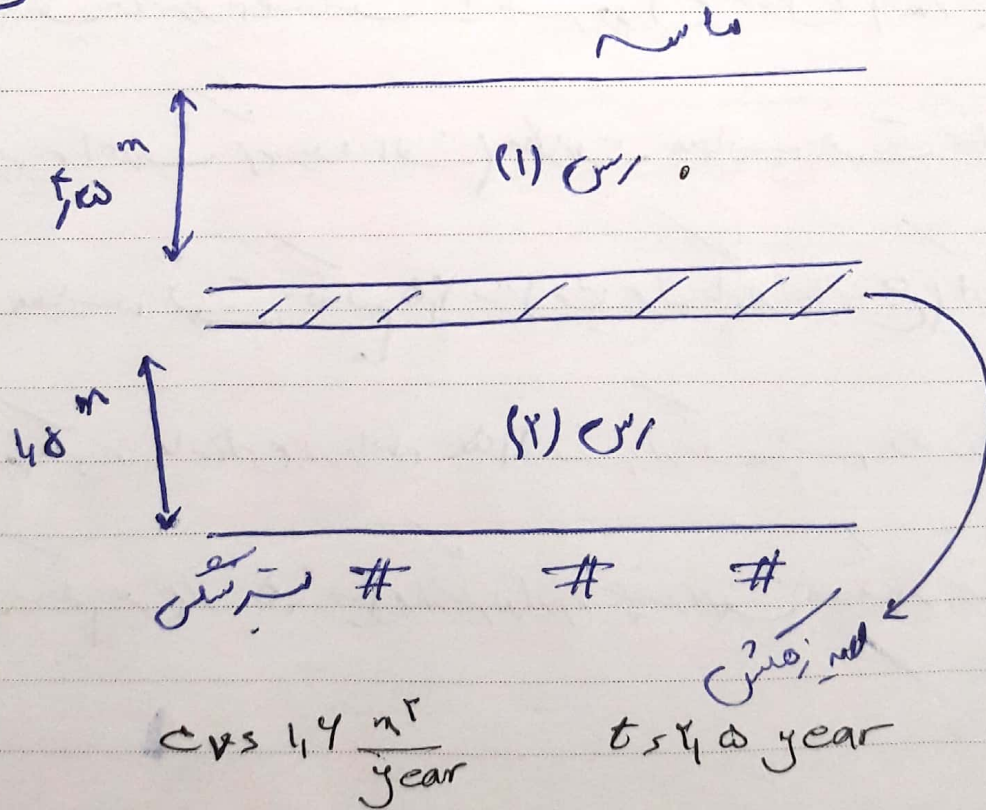 ماسه
m
رس (۱)
m
۱,۵
رس (۲)
بستر سنگی
لایه زهکش
cv = ۱,۶ m²/year t = ۲,۵ year